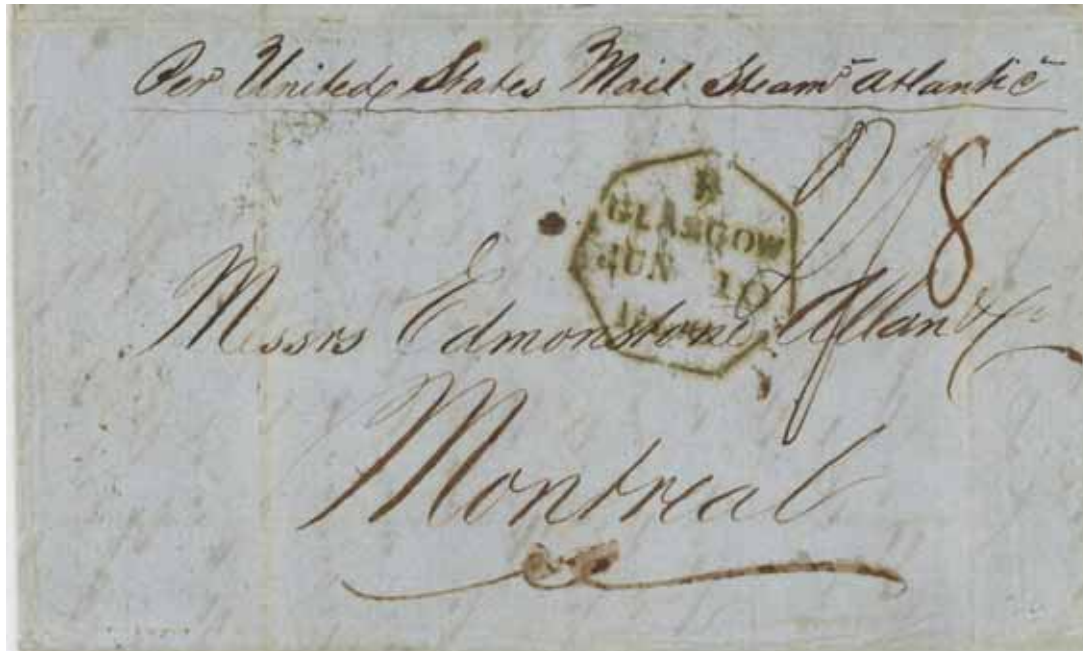 Per United States Mail Steamr Atlantic
8
B
GLASGOW
JUN 10
Messrs Edmonstone Allan & Co
Montreal